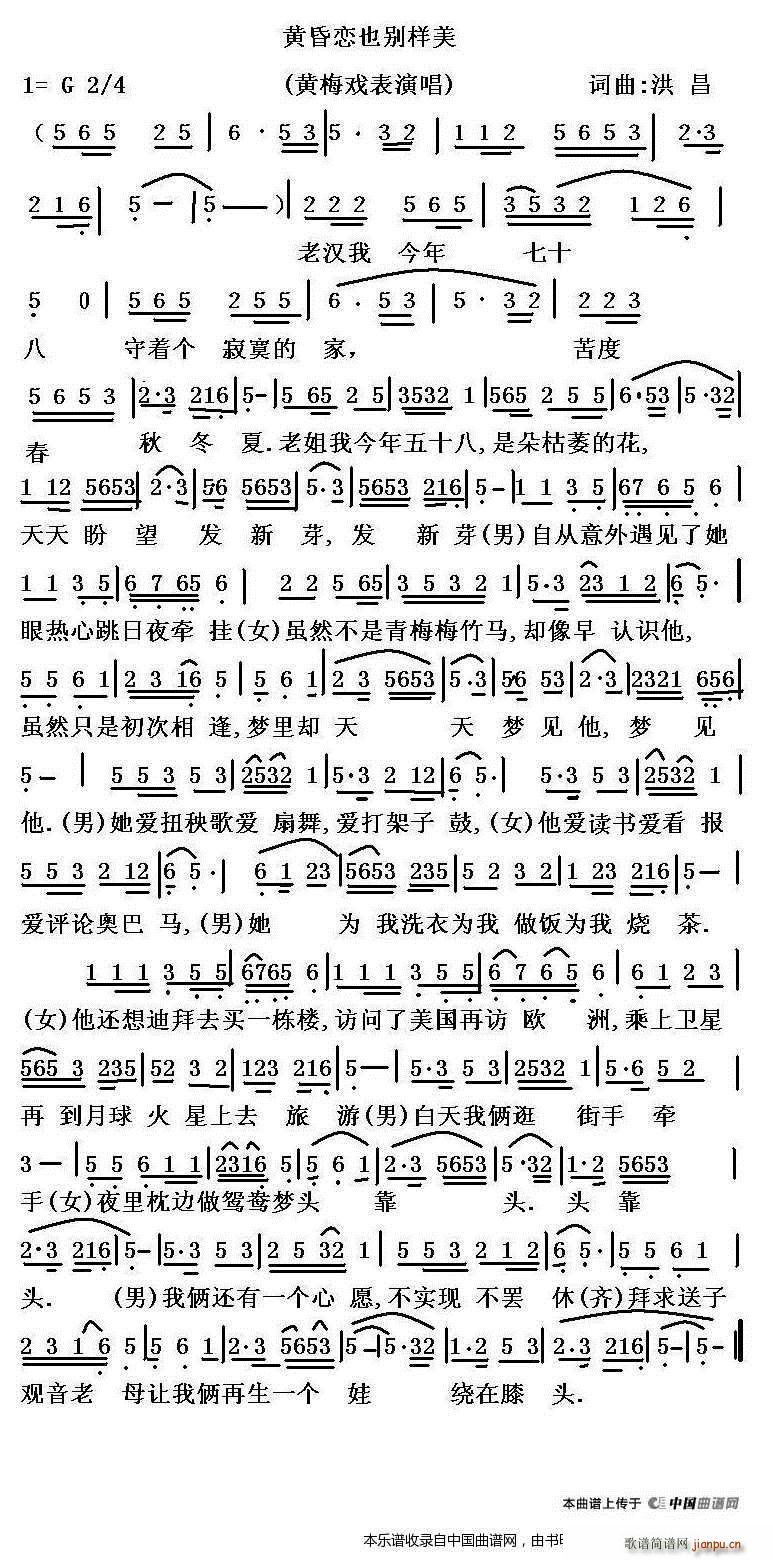 黄昏恋也别样美
1= G 2/4 (黄梅戏表演唱) 词曲:洪 昌
(5 6 5 2 5 | 6 · 5 3 | 5 · 3 2 | 1 1 2 5 6 5 3 | 2·3
2 1 6 | 5 — | 5 —— ) | 2 2 2 5 6 5 | 3 5 3 2 1 2 6
老汉我 今年 七十
5 0 | 5 6 5 2 5 5 | 6 . 5 3 | 5 · 3 2 | 2 2 3
八 守着个 寂寞的 家， 苦度
5 6 5 3 | 2·3 216 | 5- | 5 65 2 5 | 3532 1 | 565 2 5 5 | 6·53 | 5·32 |
春 秋 冬 夏.老姐我今年五十八,是朵枯萎的花,
1 12 5653 | 2·3 | 56 5653 | 5·3 | 5653 216 | 5- | 1 1 3 5 | 67 6 5 6 |
天天 盼 望 发 新 芽, 发 新 芽(男)自从意外遇见了她
1 1 3 5 | 6 7 65 6 | 2 2 5 65 | 3 5 3 2 | 5·3 23 1 2 | 6 5· |
眼热心跳日夜牵 挂(女)虽然不是青梅梅竹马,却像早 认识他,
5 5 6 1 | 2 3 16 5 | 5 6 1 | 2 3 5653 | 5·3 | 56 53 | 2·3 | 2321 656 |
虽然只是初次相 逢,梦里却 天 天 梦 见 他, 梦 见
5— | 5 5 3 5 3 | 2532 1 | 5·3 2 12 | 6 5· | 5·3 5 3 | 2532 1 |
他.(男)她爱扭秧歌爱 扇舞,爱打架子 鼓,(女)他爱读书爱看 报
5 5 3 2 12 | 6 5· | 6 1 23 | 5653 235 | 5 2 3 2 | 1 23 216 | 5— |
爱评论奥巴 马,(男)她 为 我洗衣为我 做饭为我 烧 茶.
1 1 1 3 5 5 | 6765 6 | 1 1 1 3 5 5 | 6 7 6 5 6 | 6 1 2 3 |
(女)他还想迪拜去买一栋楼,访问了美国再访 欧 洲,乘上卫星
565 3 235 | 52 3 2 | 123 216 | 5— | 5·3 5 3 | 2532 1 | 5·6 5 2 |
再 到月球 火 星上去 旅 游(男)白天我俩逛 街手 牵
3 — | 5 5 6 1 1 | 2316 5 | 5 6 1 | 2·3 5653 | 5·32 | 1·2 5653 |
手(女)夜里枕边做鸳鸯梦头 靠 头. 头 靠
2·3 216 | 5- | 5·3 5 3 | 2 5 32 1 | 5 5 3 2 1 2 | 6 5· | 5 5 6 1 |
头. (男)我俩还有一个心 愿,不实现 不罢 休(齐)拜求送子
2 3 1 6 5 | 5 6 1 | 2·3 5653 | 5— | 5·32 | 1·2 5 3 | 2·3 216 | 5- | 5- ‖
观音老 母让我俩再生一个 娃 绕在膝 头.
本曲谱上传于 中国曲谱网
本乐谱收录自中国曲谱网，由书
歌谱简谱网 jianpu.cn